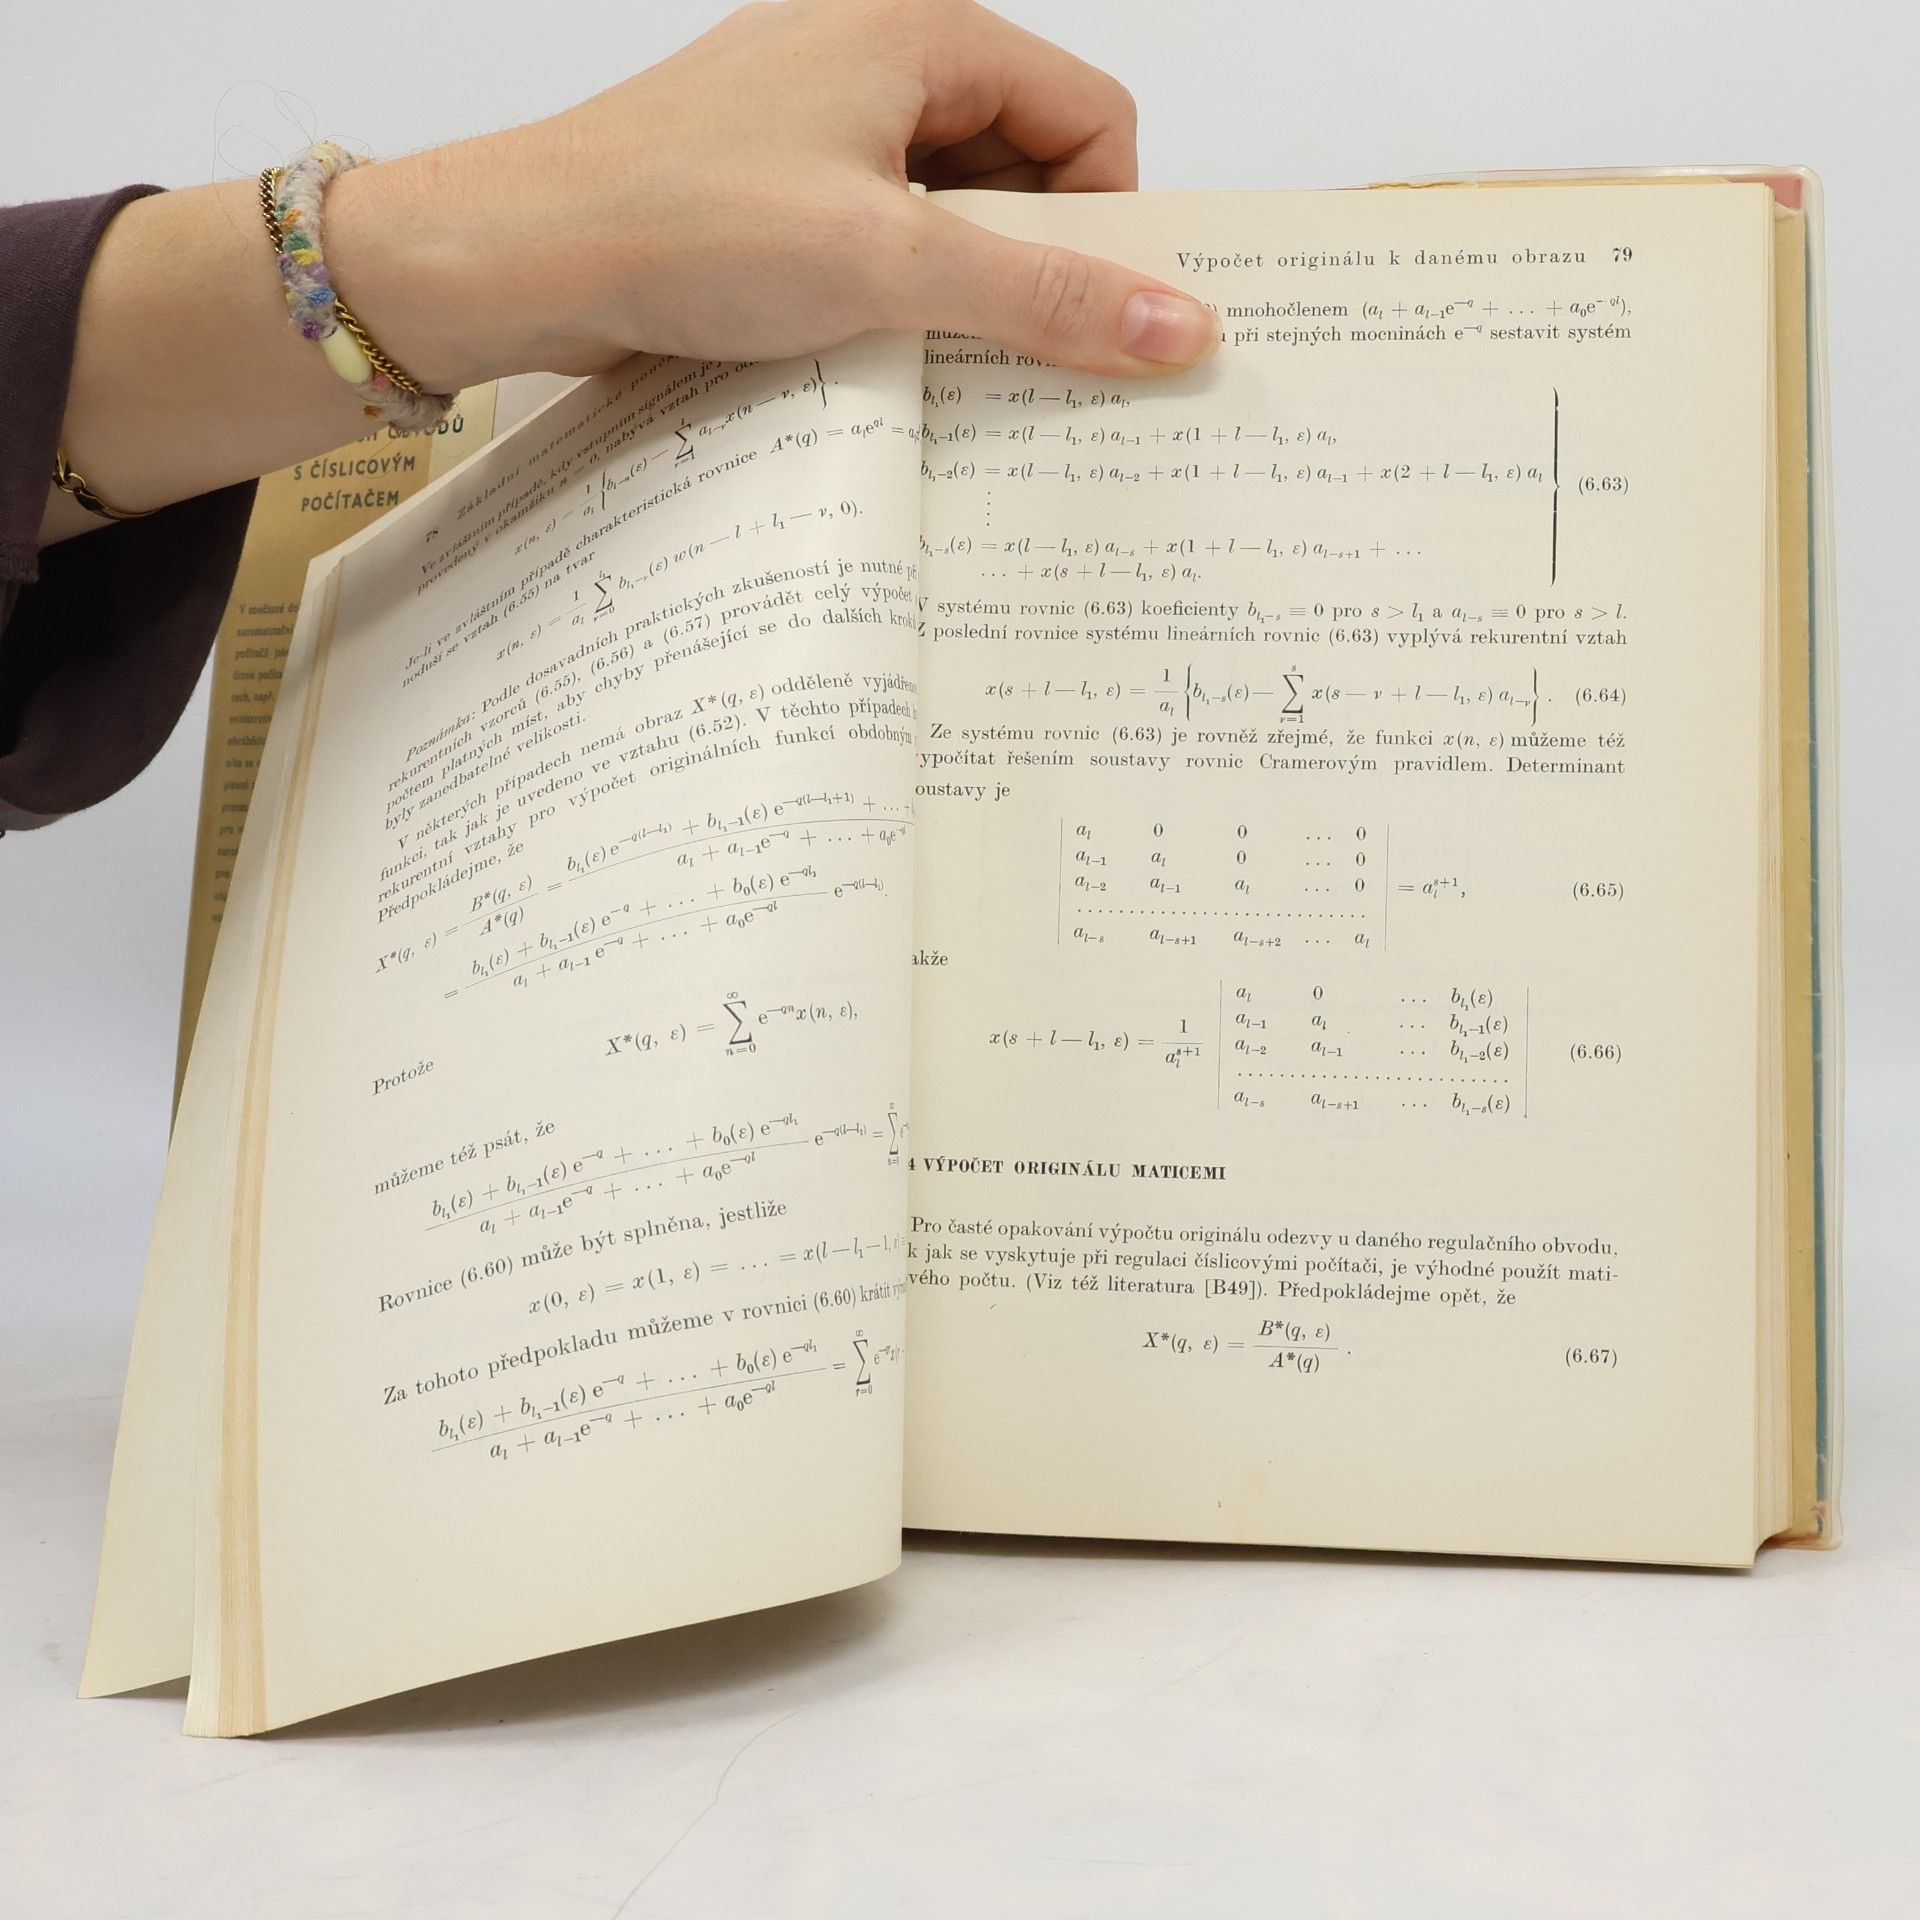 S ČÍSLICOVÝM
POČÍTAČEM
78 Základní matematické
Ve zvláštním případě, kdy vstupním signálem je
provedený v okamžiku n = 0, nabývá vztah pro
x(n, ε) = 1/a_l { b_{l-n}(ε) — ∑_{ν=1}^{l} a_{l-ν} x(n — ν, ε) } .
Je-li ve zvláštním případě charakteristická rovnice A*(q) = a_l e^{ql} =
noduší se vztah (6.55) na tvar
x(n, ε) = 1/a_l ∑_{ν=0}^{l_1} b_{l_1-ν}(ε) w(n — l + l_1 — ν, 0).
Poznámka: Podle dosavadních praktických zkušeností je nutné
rekurentních vzorců (6.55), (6.56) a (6.57) provádět celý výpočet
počtem platných míst, aby chyby přenášející se do dalších
byly zanedbatelné velikosti.
V některých případech nemá obraz X*(q, ε) odděleně
funkci, tak jak je uvedeno ve vztahu (6.52). V těchto případech
rekurentní vztahy pro výpočet originálních funkcí obdobným
Předpokládejme, že
X*(q, ε) = B*(q, ε) / A*(q) = b_{l_1}(ε) e^{—q(l—l_1)} + b_{l_1-1}(ε) e^{—q(l—l_1+1)} + ... / a_l + a_{l-1}e^{—q} + ... + a_0e^{—ql}
= b_{l_1}(ε) + b_{l_1-1}(ε) e^{—q} + ... + b_0(ε) e^{—ql_1} / a_l + a_{l-1} e^{—q} + ... + a_0e^{—ql} e^{—q(l—l_1)}.
Protože
X*(q, ε) = ∑_{n=0}^{∞} e^{—qn}x(n, ε),
můžeme též psát, že
b_{l_1}(ε) + b_{l_1-1}(ε) e^{—q} + ... + b_0(ε) e^{—ql_1} / a_l + a_{l-1}e^{—q} + ... + a_0e^{—ql} e^{—q(l—l_1)} = ∑
Rovnice (6.60) může být splněna, jestliže
x(0, ε) = x(1, ε) = ... = x(l — l_1 — 1, ε)
Za tohoto předpokladu můžeme v rovnici (6.60) krátit
b_{l_1}(ε) + b_{l_1-1}(ε) e^{—q} + ... + b_0(ε) e^{—ql_1} / a_l + a_{l-1}e^{—q} + ... + a_0e^{—ql} = ∑
Výpočet originálu k danému obrazu 79
mnohočlenem (a_l + a_{l-1}e^{—q} + ... + a_0e^{—ql}),
při stejných mocninách e^{—q} sestavit systém
lineárních
b_{l_1}(ε) = x(l — l_1, ε) a_l,
b_{l_1-1}(ε) = x(l — l_1, ε) a_{l-1} + x(1 + l — l_1, ε) a_l,
b_{l_1-2}(ε) = x(l — l_1, ε) a_{l-2} + x(1 + l — l_1, ε) a_{l-1} + x(2 + l — l_1, ε) a_l (6.63)
⋮
b_{l_1-s}(ε) = x(l — l_1, ε) a_{l-s} + x(1 + l — l_1, ε) a_{l-s+1} + ...
... + x(s + l — l_1, ε) a_l.
V systému rovnic (6.63) koeficienty b_{l_1-s} ≡ 0 pro s > l_1 a a_{l-s} ≡ 0 pro s > l.
Z poslední rovnice systému lineárních rovnic (6.63) vyplývá rekurentní vztah
x(s + l — l_1, ε) = 1/a_l { b_{l_1-s}(ε) — ∑_{ν=1}^{s} x(s — ν + l — l_1, ε) a_{l-ν} } . (6.64)
Ze systému rovnic (6.63) je rovněž zřejmé, že funkci x(n, ε) můžeme též
ypočítat řešením soustavy rovnic Cramerovým pravidlem. Determinant
oustavy je
a_l 0 0 ... 0
a_{l-1} a_l 0 ... 0
a_{l-2} a_{l-1} a_l ... 0 = a_l^{s+1}, (6.65)
..............................
a_{l-s} a_{l-s+1} a_{l-s+2} ... a_l
akže
a_l 0 ... b_{l_1}(ε)
a_{l-1} a_l ... b_{l_1-1}(ε)
x(s + l — l_1, ε) = 1/a_l^{s+1} a_{l-2} a_{l-1} ... b_{l_1-2}(ε) (6.66)
..............................
a_{l-s} a_{l-s+1} ... b_{l_1-s}(ε)
4 VÝPOČET ORIGINÁLU MATICEMI
Pro časté opakování výpočtu originálu odezvy u daného regulačního obvodu,
k jak se vyskytuje při regulaci číslicovými počítači, je výhodné použít mati-
vého počtu. (Viz též literatura [B49]). Předpokládejme opět, že
X*(q, ε) = B*(q, ε) / A*(q) . (6.67)